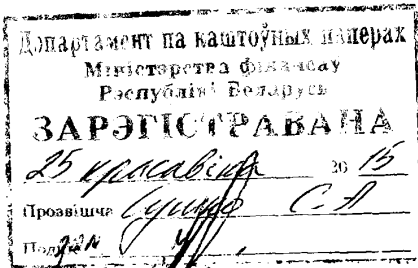 Дэпартамент па каштоўных паперах
Міністэрства фінансаў
Рэспублікі Беларусь
ЗАРЭГІСТРАВАНА
25 красавіка 2015
Прозвішча С.А
Подпіс